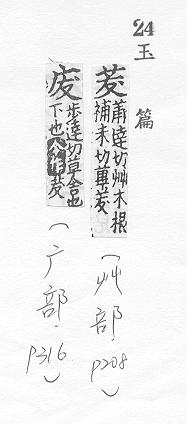 24
玉篇
茇
莆達切艸木根
補末切蓽茇
(艸部 p208)
废
步達切草舍也
下也今作茇
(广部 p316)